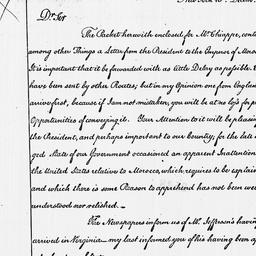 Dr. Sir
The Packet herewith enclosed for Mr Chiappe, conta
among other Things a Letter from the President to the Emperor of Moroc
It is important that it be forwarded with as little Delay as possible.
have been sent by other Routes; but in my Opinion one from Englan
arrive first, because if I am not mistaken, you will be at no loss for p
Opportunities of conveying it. Your Attention to it will be pleasing
the President, and perhaps important to our Country; for the late
ged State of our Government occasioned an apparent Inattention
the United States relative to Morocco, which requires to be explain
and which there is some Reason to apprehend has not been wel
understood nor relished.—
The Newspapers inform us of Mr. Jefferson's having
arrived in Virginia — my last informed you of his having been ap